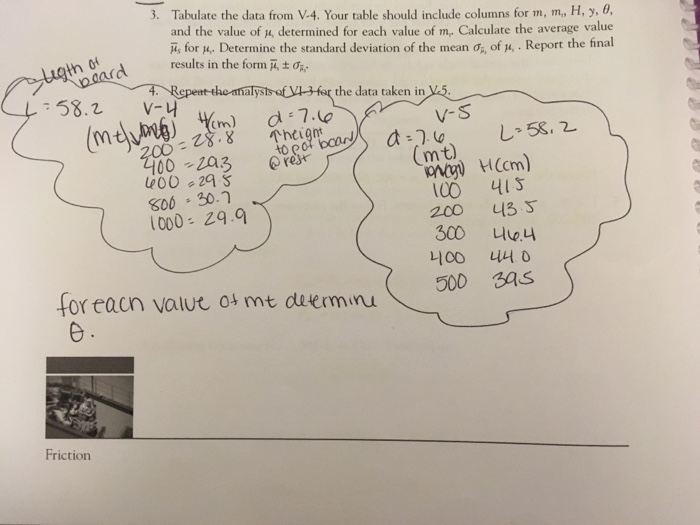 3. Tabulate the data from V-4. Your table should include columns for m, mₜ, H, y, θ,
and the value of μₛ determined for each value of mₜ. Calculate the average value
μ̄ₛ for μₛ. Determine the standard deviation of the mean σ of μₛ. Report the final
results in the form μ̄ₛ ± σ
4. Repeat the analysis of VI-3 for the data taken in V-5.
length of
board
L = 58.2
V-4
(mt) H(cm)
200 = 28.8
400 = 29.3
600 = 29.5
800 = 30.7
1000 = 29.9
d = 7.6
height
to pot board
@ rest
V-5
d = 7.6 L = 58.2
(mt)
H(cm)
100 41.5
200 43.5
300 46.4
400 44.0
500 39.5
for each value of mt determine
θ.
Friction